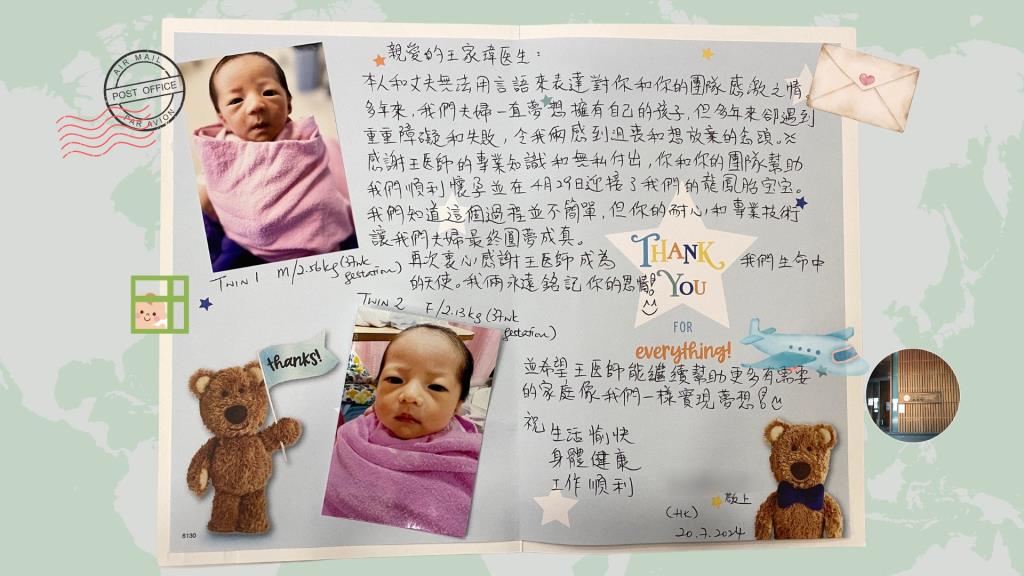 AIR MAIL
POST OFFICE
PAR AVION
親愛的王家瑋医生：
本人和丈夫無法用言語來表達對你和你的團隊感激之情。
多年來，我們夫婦一直夢想擁有自己的孩子，但多年來卻遇到
重重障礙和失敗，令我倆感到沮喪和想放棄的念頭。
感謝王医師的專業知識和無私付出，你和你的團隊幫助
我們順利懷孕並在4月29日迎接了我們的龍鳳胎宝宝。
我們知道這個過程並不簡單，但你的耐心和專業技術
讓我們夫婦最終圓夢成真。
再次衷心感謝王医師成為 我們生命中
的天使。我倆永遠銘記你的恩情。
TWIN 1 M/2.56kg (37wk
gestation)
THANK
YOU
FOR
everything!
TWIN 2 F/2.13kg (37wk
gestation)
thanks!
並希望王医師能繼續幫助更多有需要
的家庭像我們一樣實現夢想!
祝
生活愉快
身體健康
工作順利
敬上
(HK)
20.7.2024
6130